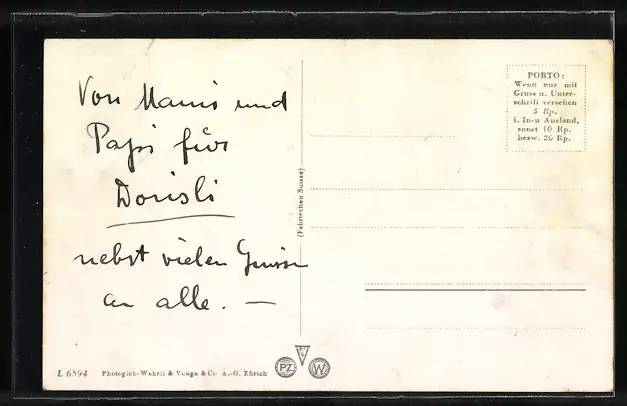 Von Mami und
Papi für
Dorisli
nebst vielen Grüssen
an alle. —
(Fabrication Suisse)
PORTO:
Wenn nur mit
Gruss u. Unter-
schrift versehen
5 Rp.
i. In-u Ausland,
sonst 10 Rp.
bezw. 20 Rp.
L 6594 Photoglob-Wehrli & Vouga & Co A.-G. Zürich
PZ W